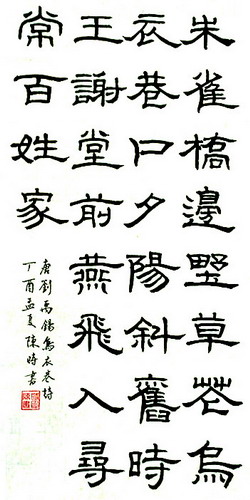 朱雀橋邊野草花烏
衣巷口夕陽斜舊時
王謝堂前燕飛入尋
常百姓家
唐劉禹錫烏衣巷詩
丁酉孟夏陳時書